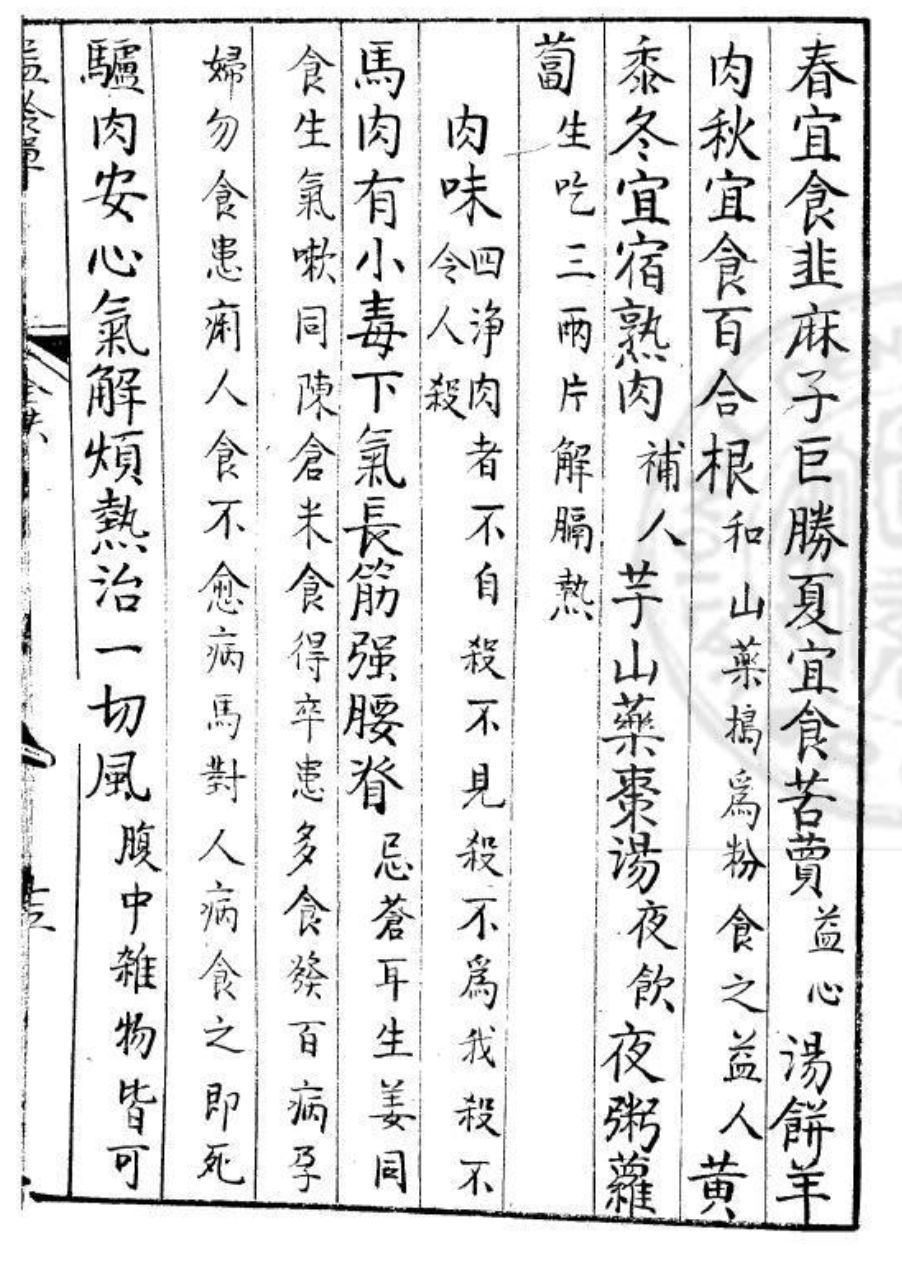 春宜食韭麻子巨勝夏宜食苦賈益心湯餅羊
肉秋宜食百合根和山藥搗爲粉食之益人黄
黍冬宜宿熟肉補人芋山藥棗湯夜飲夜粥蘿
蔔生吃三兩片解膈熱
肉味四净肉者不自殺不見殺不爲我殺不令人殺
馬肉有小毒下氣長筋强腰脊忌蒼耳生姜同
食生氣嗽同陳倉米食得卒患多食發百病孕
婦勿食患痢人食不愈病馬對人病食之即死
驢肉安心氣解煩熱治一切風腹中雜物皆可